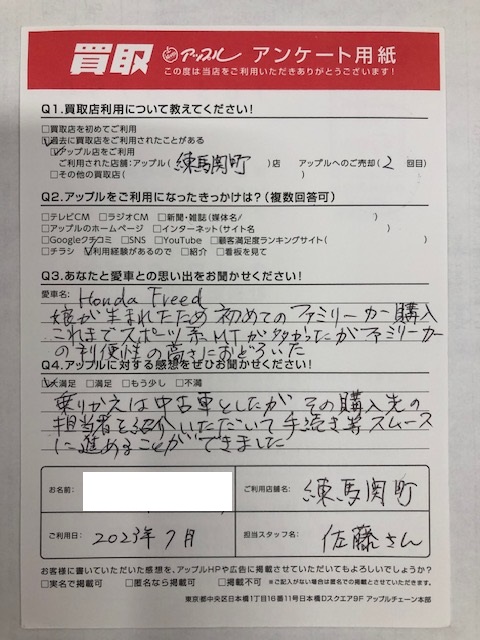 買取 アップル アンケート用紙
この度は当店をご利用いただきありがとうございます!
Q1.買取店利用について教えてください!
□買取店を初めてご利用
☑過去に買取店をご利用されたことがある
☑アップル店をご利用
ご利用された店舗:アップル( 練馬関町 )店 アップルへのご売却( 2 回目)
□その他の買取店( )
Q2.アップルをご利用になったきっかけは?(複数回答可)
□テレビCM □ラジオCM □新聞・雑誌(媒体名/ )
□アップルのホームページ □インターネット(サイト名 )
□Googleクチコミ □SNS □YouTube □顧客満足度ランキングサイト( )
□チラシ ☑利用経験があるので □紹介 □看板を見て
Q3.あなたと愛車との思い出をお聞かせください!
愛車名: Honda Freed
娘が生まれたため初めてのファミリーカー購入
これまでスポーツ系MTが多かったがファミリーカー
の利便性の高さにおどろいた
Q4.アップルに対する感想をぜひお聞かせください!
☑大満足 □満足 □もう少し □不満
乗りかえは中古車としたが その購入先の
担当者を紹介いただいて手続き等スムース
に進めることができました
お名前: ご利用店舗名: 練馬関町
ご利用日: 2023年7月 担当スタッフ名: 佐藤さん
お客様に書いていただいた感想を、アップルHPや広告に掲載させていただいてもよろしいでしょうか?
□実名で掲載可 □匿名なら掲載可 □掲載不可 ※ご記入がない場合は匿名での掲載とさせていただきます。
東京都中央区日本橋1丁目16番11号日本橋Dスクエア9F アップルチェーン本部